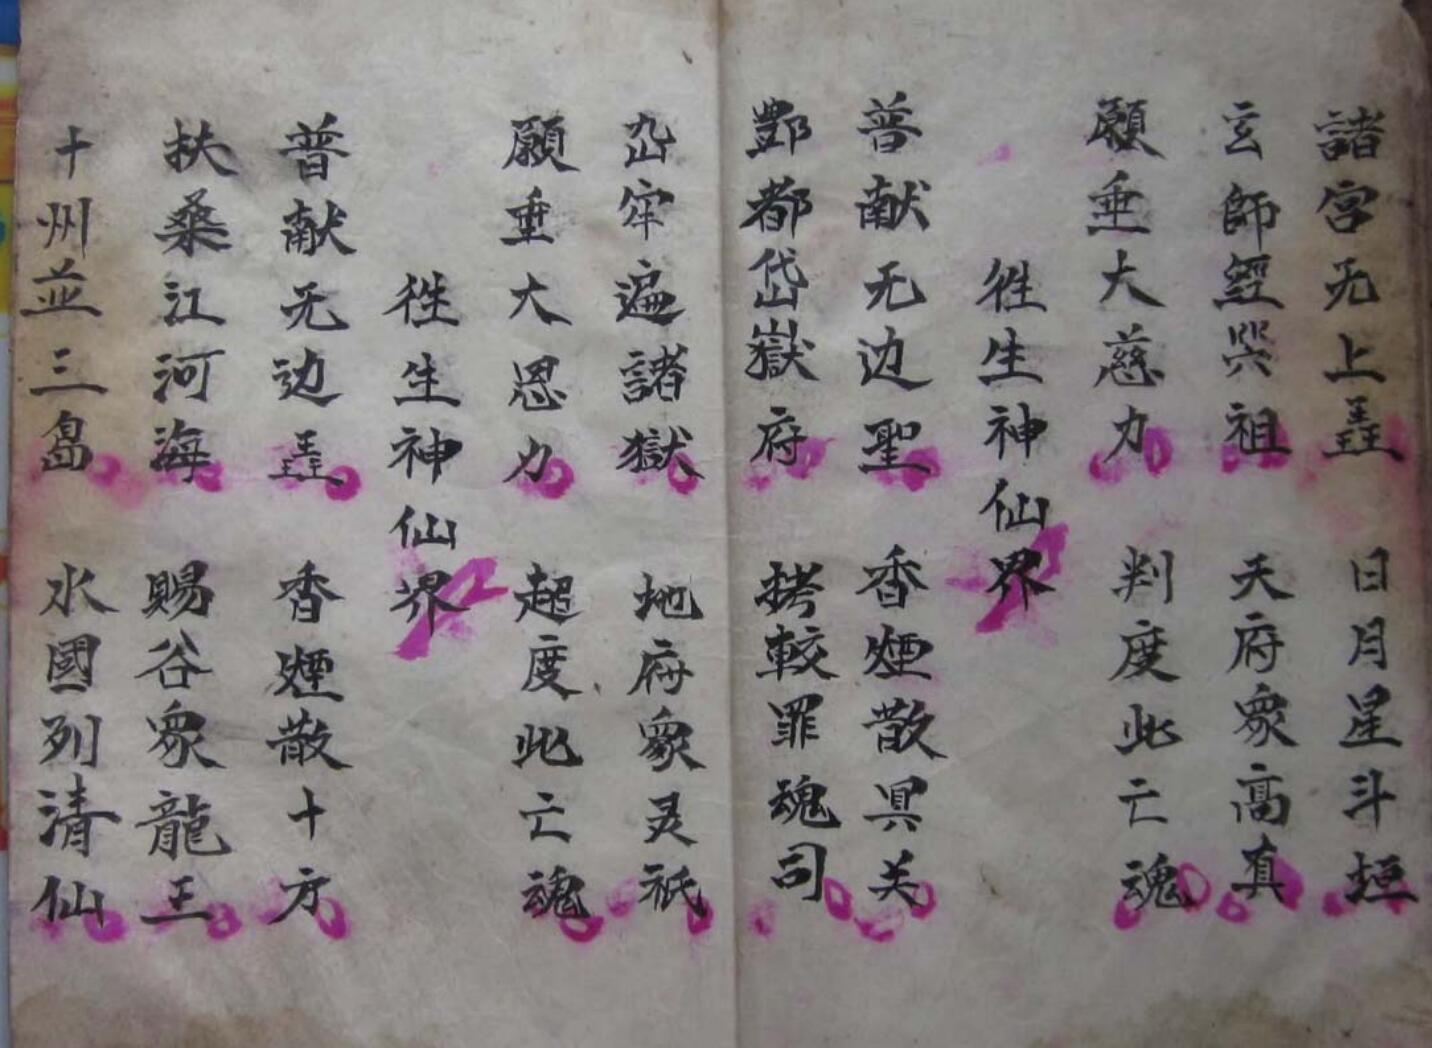 諸宮无上𦤀 日月星斗垣
玄師經咒祖 天府眾高真
願垂大慈力 判度此亡魂
徃生神仙界
普献无边聖 香煙散冥关
酆都岱嶽府 拷較罪魂司
牢遍諸獄 地府眾灵祇
願重大恩力 超度此亡魂
徃生神仙界
普献无边 香煙散十方
扶桑江河海 賜谷眾龍王
十州並三島 水國列清仙